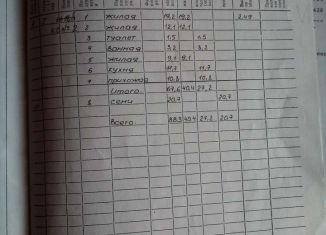 1 жилая 19,2 19,2 2.49
2 жилая 12,1 12,1
3 туалет 1,5 1.5
4 ванная 3,2 3.2
5 жилая 9,1 9,1
6 кухня 11,7 11,7
7 прихожая 10,8 10.8
Итого 67,6 40,4 27,2
8 сени 20,7 20,7
Всего 88,3 40,4 27,2 20,7